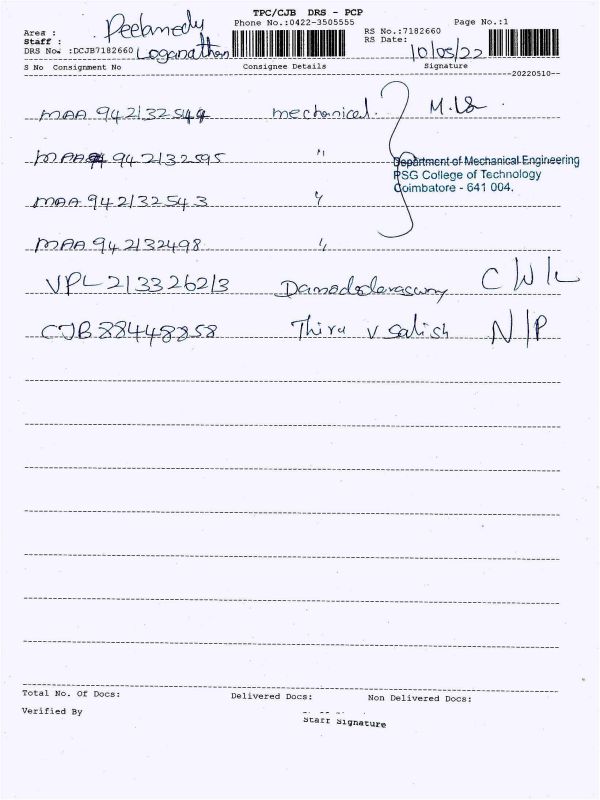 TPC/CJB DRS - PCP
Area : Peelamedu Phone No.:0422-3505555 Page No.:1
Staff : Loganathan RS No.:7182660
DRS No. :DCJB7182660 RS Date: 10/05/22
S No Consignment No Consignee Details Signature
--20220510--
MAA 942132544 mechanical.
MAA 942132595 "
Department of Mechanical Engineering
PSG College of Technology
Coimbatore - 641 004.
MAA 942132543 "
MAA 942132498 "
VPL 213326213 Damodolaraswmy C/W/L
CJB 88448858 Thiru V Satish N/P
Total No. Of Docs: Delivered Docs: Non Delivered Docs:
Verified By
Staff Signature